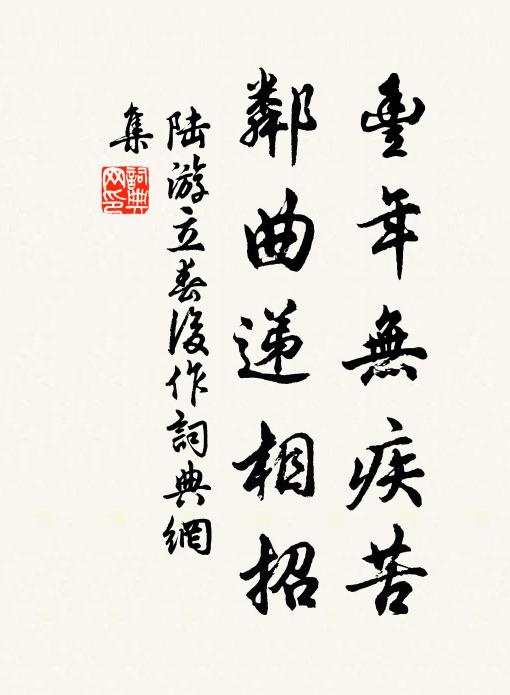 豐年無疾苦
鄰曲遞相招
陸游立春後作詞典網
集
詞典
网印